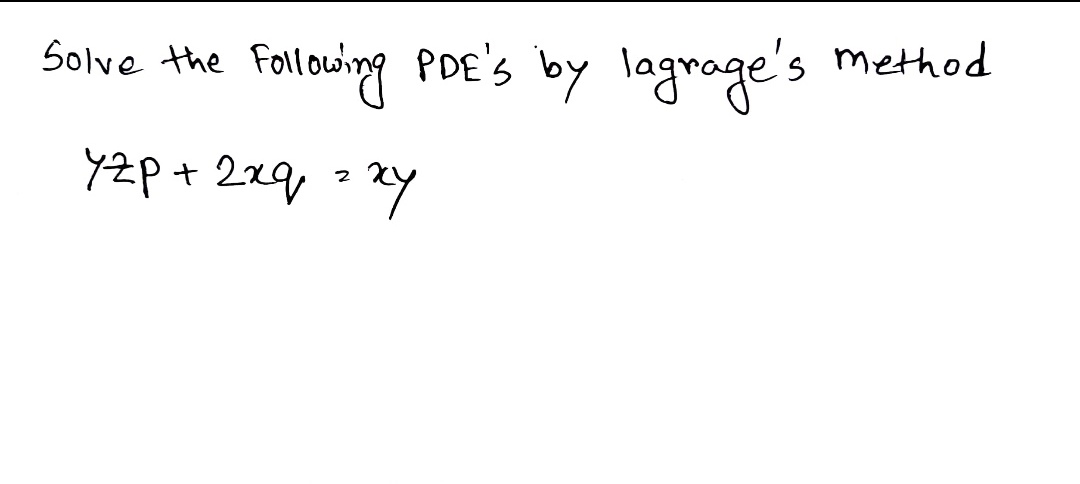 Solve the Following PDE's by lagrage's method
yzp + 2xq = xy